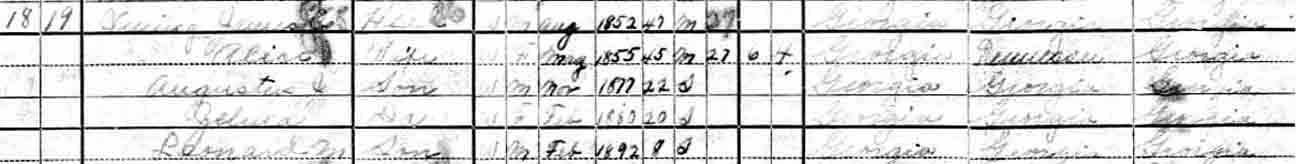 18 19 James Aug 1852 47 M 27 Georgia Georgia Georgia
Alice Wife F May 1855 45 M 27 6 4 Georgia Tennessee Georgia
Augustus Son M Nov 1877 22 S Georgia Georgia Georgia
F Feb 1880 20 S Georgia Georgia Georgia
Leonard M Son M Feb 1892 8 S Georgia Georgia Georgia